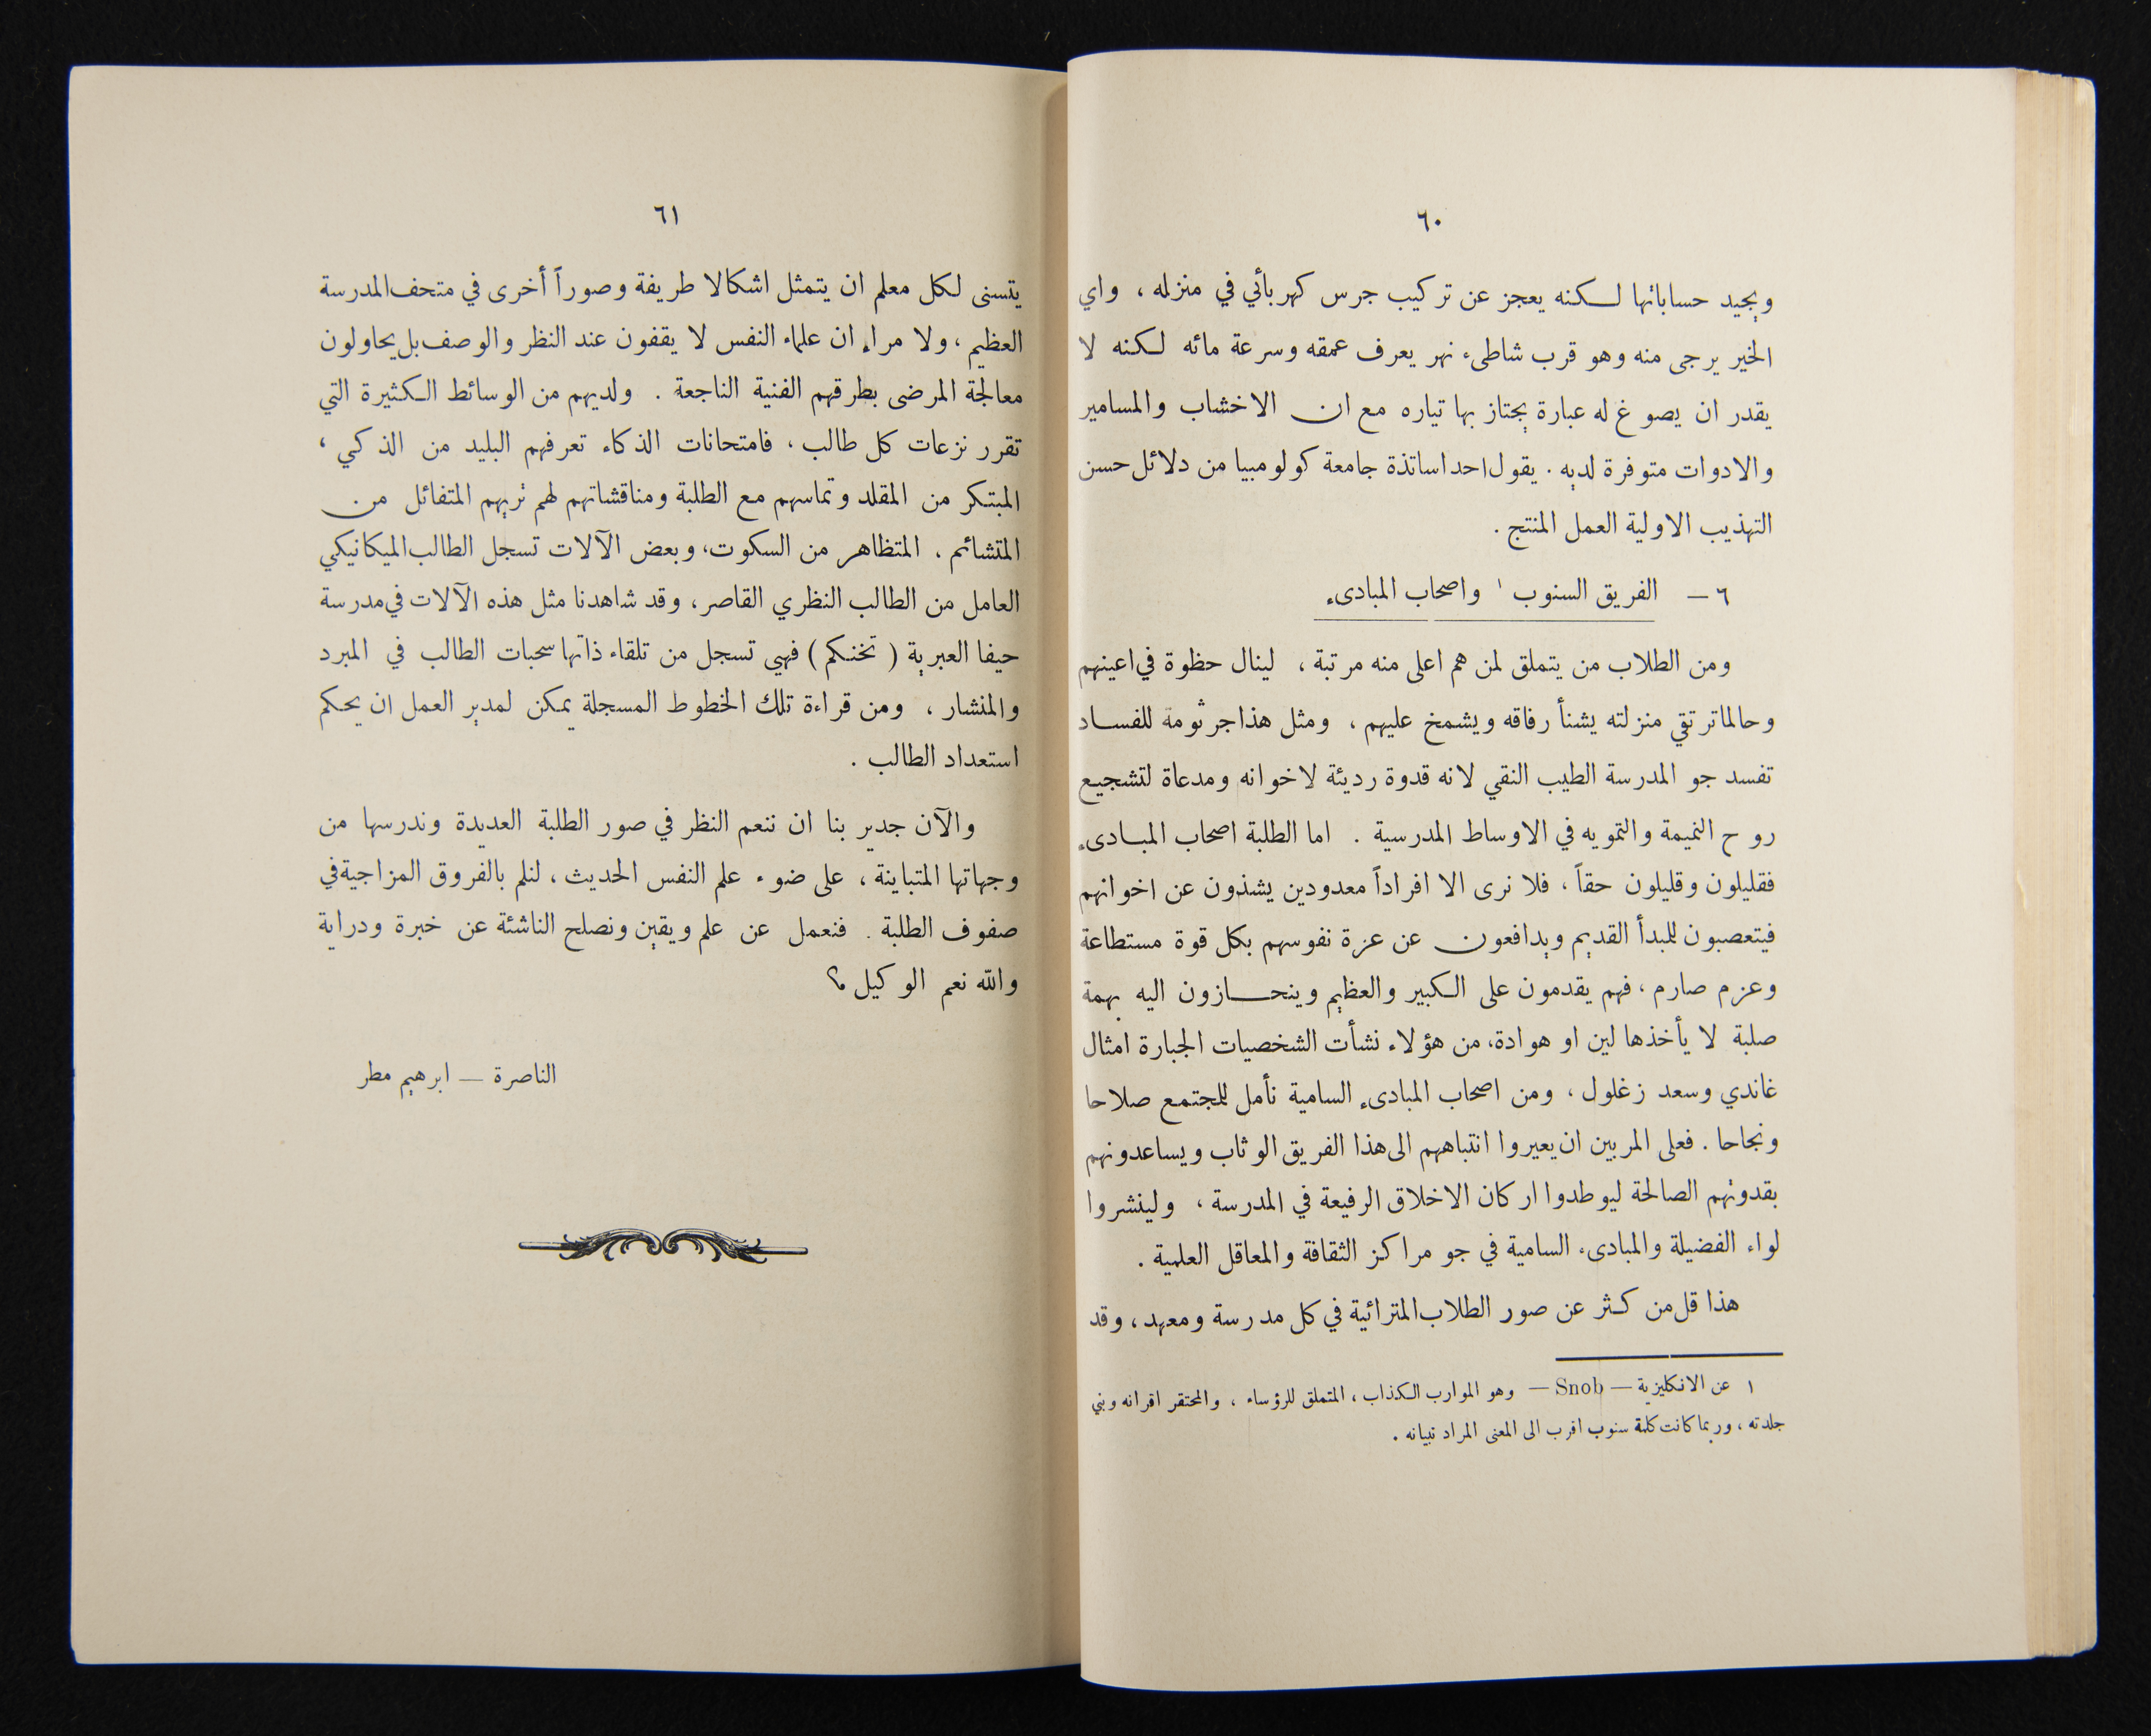 ٦٠
ويجيد حساباتها لكنه يعجز عن تركيب جرس كهربائي في منزله ، واي
الخير يرجى منه وهو قرب شاطىء نهر يعرف عمقه وسرعة مائه لكنه لا
يقدر ان يصوغ له عبارة يجتاز بها تياره مع ان الاخشاب والمسامير
والادوات متوفرة لديه . يقول احد اساتذة جامعة كولومبيا من دلائل حسن
التهذيب الاولية العمل المنتج .
٦ — الفريق السنوب ١ واصحاب المبادىء
ومن الطلاب من يتملق لمن هم اعلى منه مرتبة ، لينال حظوة في اعينهم
وحالما ترتقي منزلته يشنأ رفاقه ويشمخ عليهم ، ومثل هذا جرثومة للفساد
تفسد جو المدرسة الطيب النقي لانه قدوة رديئة لاخوانه ومدعاة لتشجيع
روح النميمة والتمويه في الاوساط المدرسية . اما الطلبة اصحاب المبادىء
فقليلون وقليلون حقاً ، فلا نرى الا افراداً معدودين يشذون عن اخوانهم
فيتعصبون للمبدأ القديم ويدافعون عن عزة نفوسهم بكل قوة مستطاعة
وعزم صارم ، فهم يقدمون على الكبير والعظيم وينحازون اليه بهمة
صلبة لا يأخذها لين او هوادة، من هؤلاء نشأت الشخصيات الجبارة امثال
غاندي وسعد زغلول ، ومن اصحاب المبادىء السامية نأمل للمجتمع صلاحا
ونجاحا . فعلى المربين ان يعيروا انتباههم الى هذا الفريق الوثاب ويساعدونهم
بقدوتهم الصالحة ليوطدوا اركان الاخلاق الرفيعة في المدرسة ، ولينشروا
لواء الفضيلة والمبادىء السامية في جو مراكز الثقافة والمعاقل العلمية .
هذا قل من كثر عن صور الطلاب المترائية في كل مدرسة ومعهد ، وقد
١ عن الانكليزية — Snob — وهو الموارب الكذاب ، المتملق للرؤساء ، والمحتقر اقرانه وبني
جلدته ، وربما كانت كلمة سنوب اقرب الى المعنى المراد تبيانه .
٦١
يتسنى لكل معلم ان يتمثل اشكالا طريفة وصوراً أخرى في متحف المدرسة
العظيم ، ولا مراء ان علماء النفس لا يقفون عند النظر والوصف بل يحاولون
معالجة المرضى بطرقهم الفنية الناجعة . ولديهم من الوسائط الكثيرة التي
تقرر نزعات كل طالب ، فامتحانات الذكاء تعرفهم البليد من الذكي ،
المبتكر من المقلد وتماسهم مع الطلبة ومناقشاتهم لهم تريهم المتفائل من
المتشائم ، المتظاهر من السكوت، وبعض الآلات تسجل الطالب الميكانيكي
العامل من الطالب النظري القاصر ، وقد شاهدنا مثل هذه الآلات في مدرسة
حيفا العبرية ( تخنكم ) فهي تسجل من تلقاء ذاتها سحبات الطالب في المبرد
والمنشار ، ومن قراءة تلك الخطوط المسجلة يمكن لمدير العمل ان يحكم
استعداد الطالب .
والآن جدير بنا ان ننعم النظر في صور الطلبة العديدة وندرسها من
وجهاتها المتباينة ، على ضوء علم النفس الحديث ، لنلم بالفروق المزاجية في
صفوف الطلبة . فنعمل عن علم ويقين ونصلح الناشئة عن خبرة ودراية
والله نعم الوكيل ؟
الناصرة — ابرهيم مطر